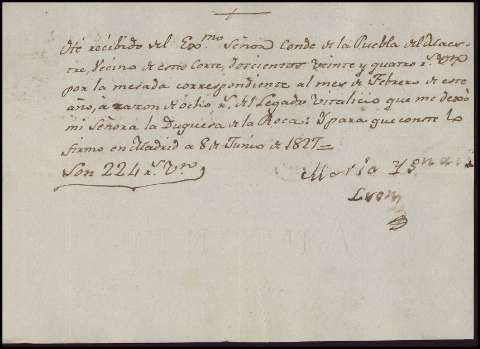 He recibido del Ex.mo Señor Conde de la Puebla del Maes-
tre, Vecino de esta Corte, Doscientos veinte y quatro r.s vn
por la mesada correspondiente al mes de Febrero de este
año, à razon de ocho r.s del Legado vitalicio que me dexò
mi Señora la Duquesa de la Roca: Y para que conste lo
firmo en Madrid a 8 de Junio de 1827=
Son 224 r.s V.n
Maria